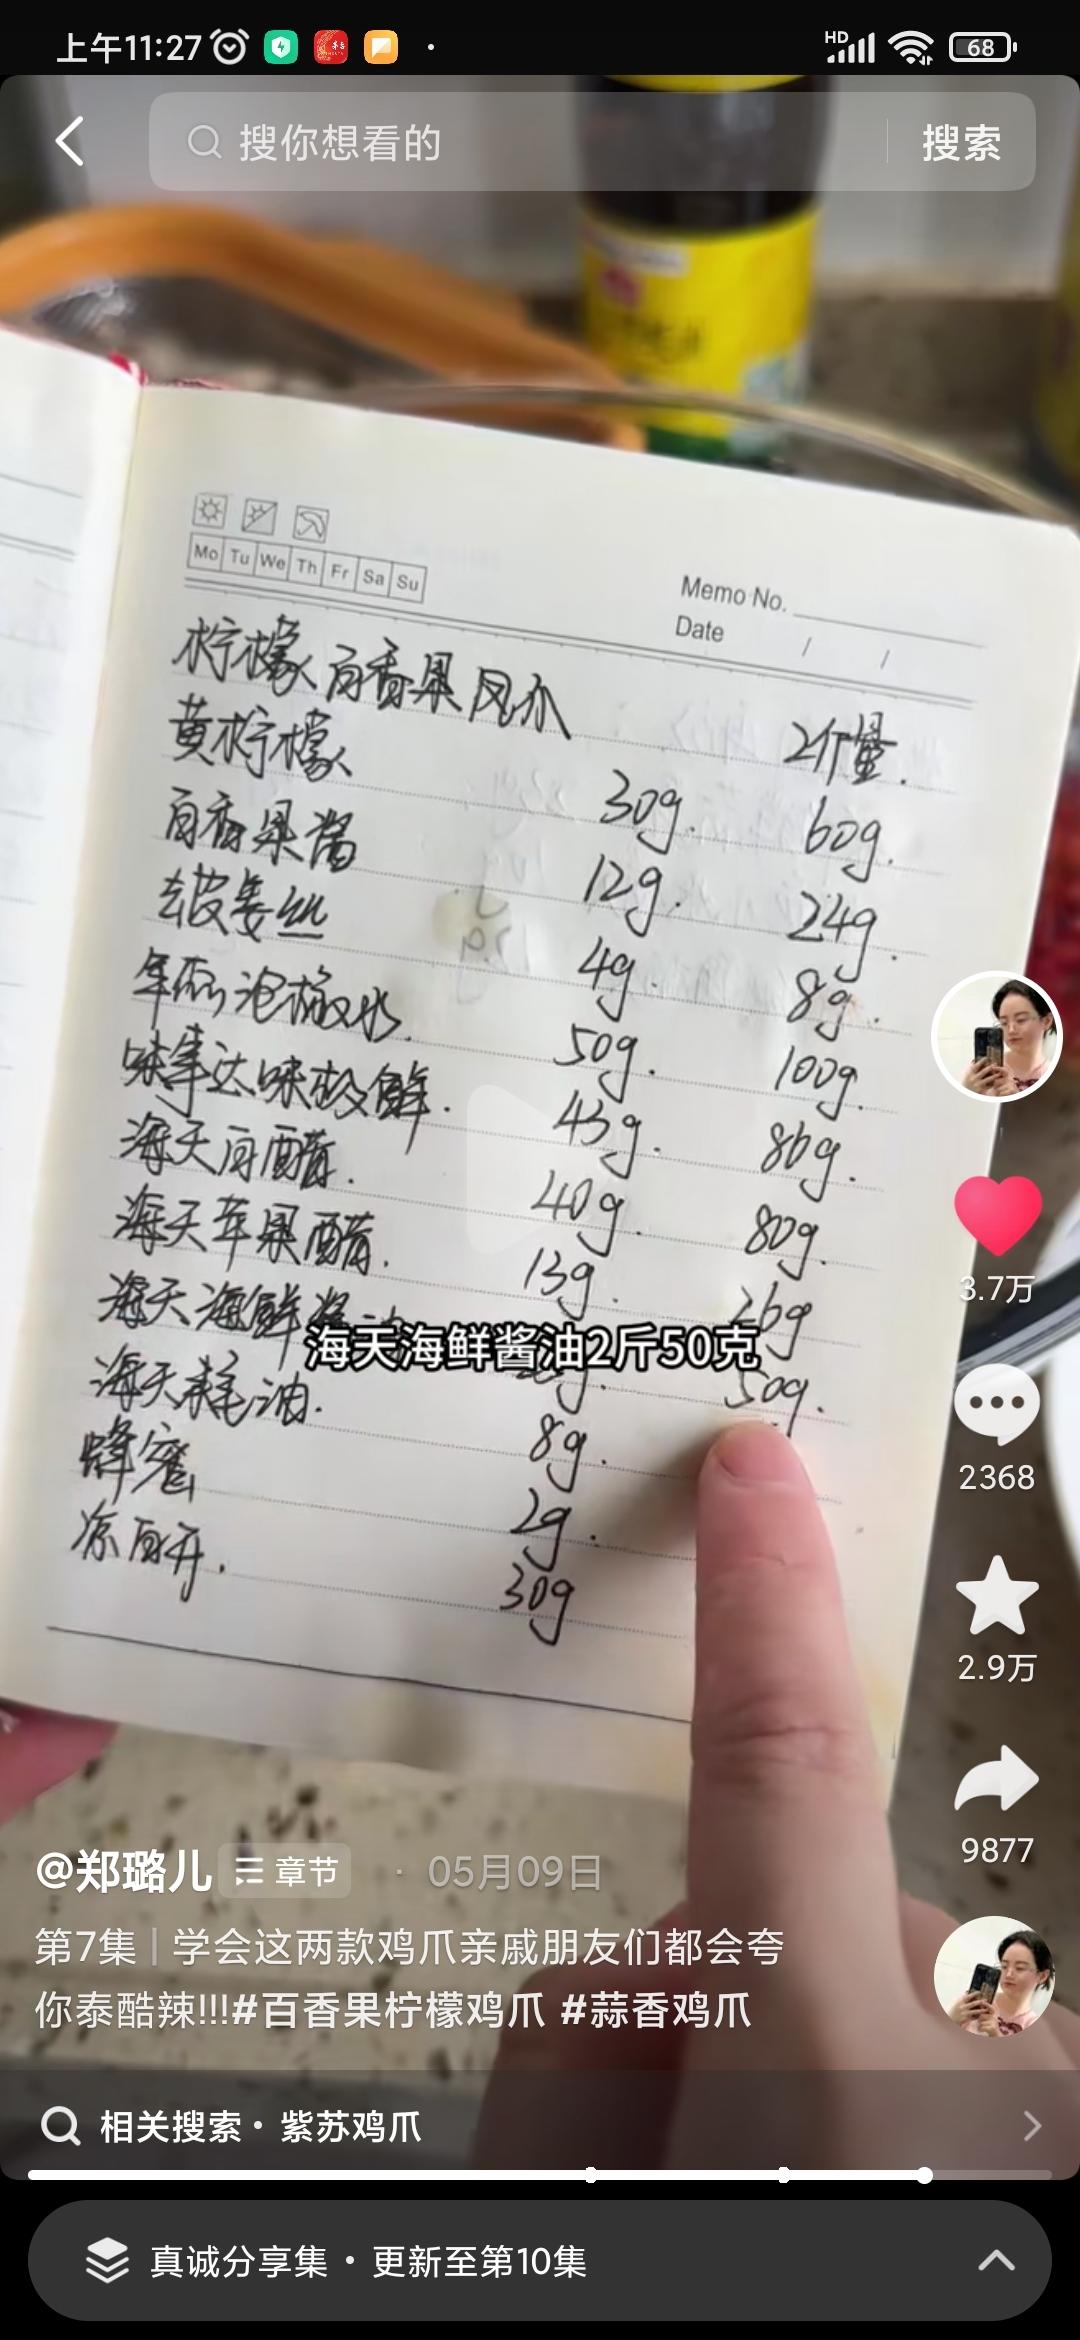 上午11:27
HD
68
搜你想看的
搜索
Mo Tu We Th Fr Sa Su
Memo No.
Date / /
柠檬百香果凤爪 2斤量.
黄柠檬 30g. 60g.
百香果酱 12g. 24g.
去皮姜丝 4g. 8g.
泡椒水. 50g. 100g.
味事达味极鲜. 43g. 86g.
海天白醋. 40g. 80g.
海天苹果醋. 13g. 26g
海天海鲜 50g.
海天海鲜酱油2斤50克
海天耗油. 8g.
蜂蜜 2g.
凉白开. 30g
3.7万
2368
2.9万
9877
@郑璐儿 章节 · 05月09日
第7集 | 学会这两款鸡爪亲戚朋友们都会夸
你泰酷辣!!!#百香果柠檬鸡爪 #蒜香鸡爪
相关搜索 · 紫苏鸡爪
真诚分享集 · 更新至第10集